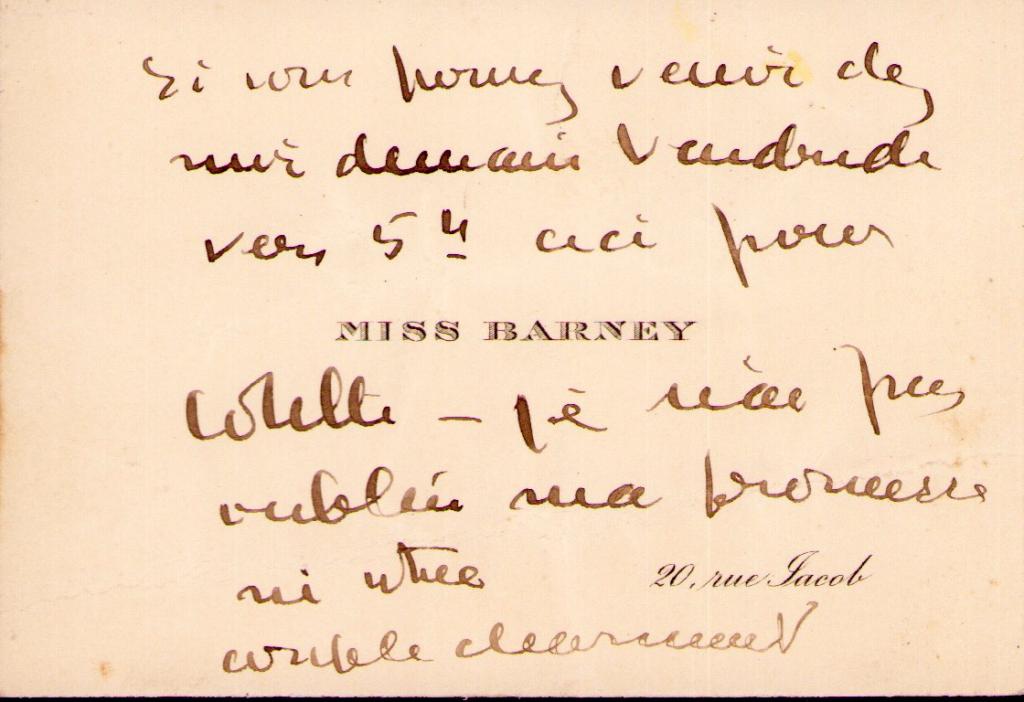 Si vous pouvez venir chez
moi demain Vendredi
vers 5 h ici pour
MISS BARNEY
Colette – je n'ai pas
oublié ma promesse
ni votre
20, rue Jacob
couple charmant